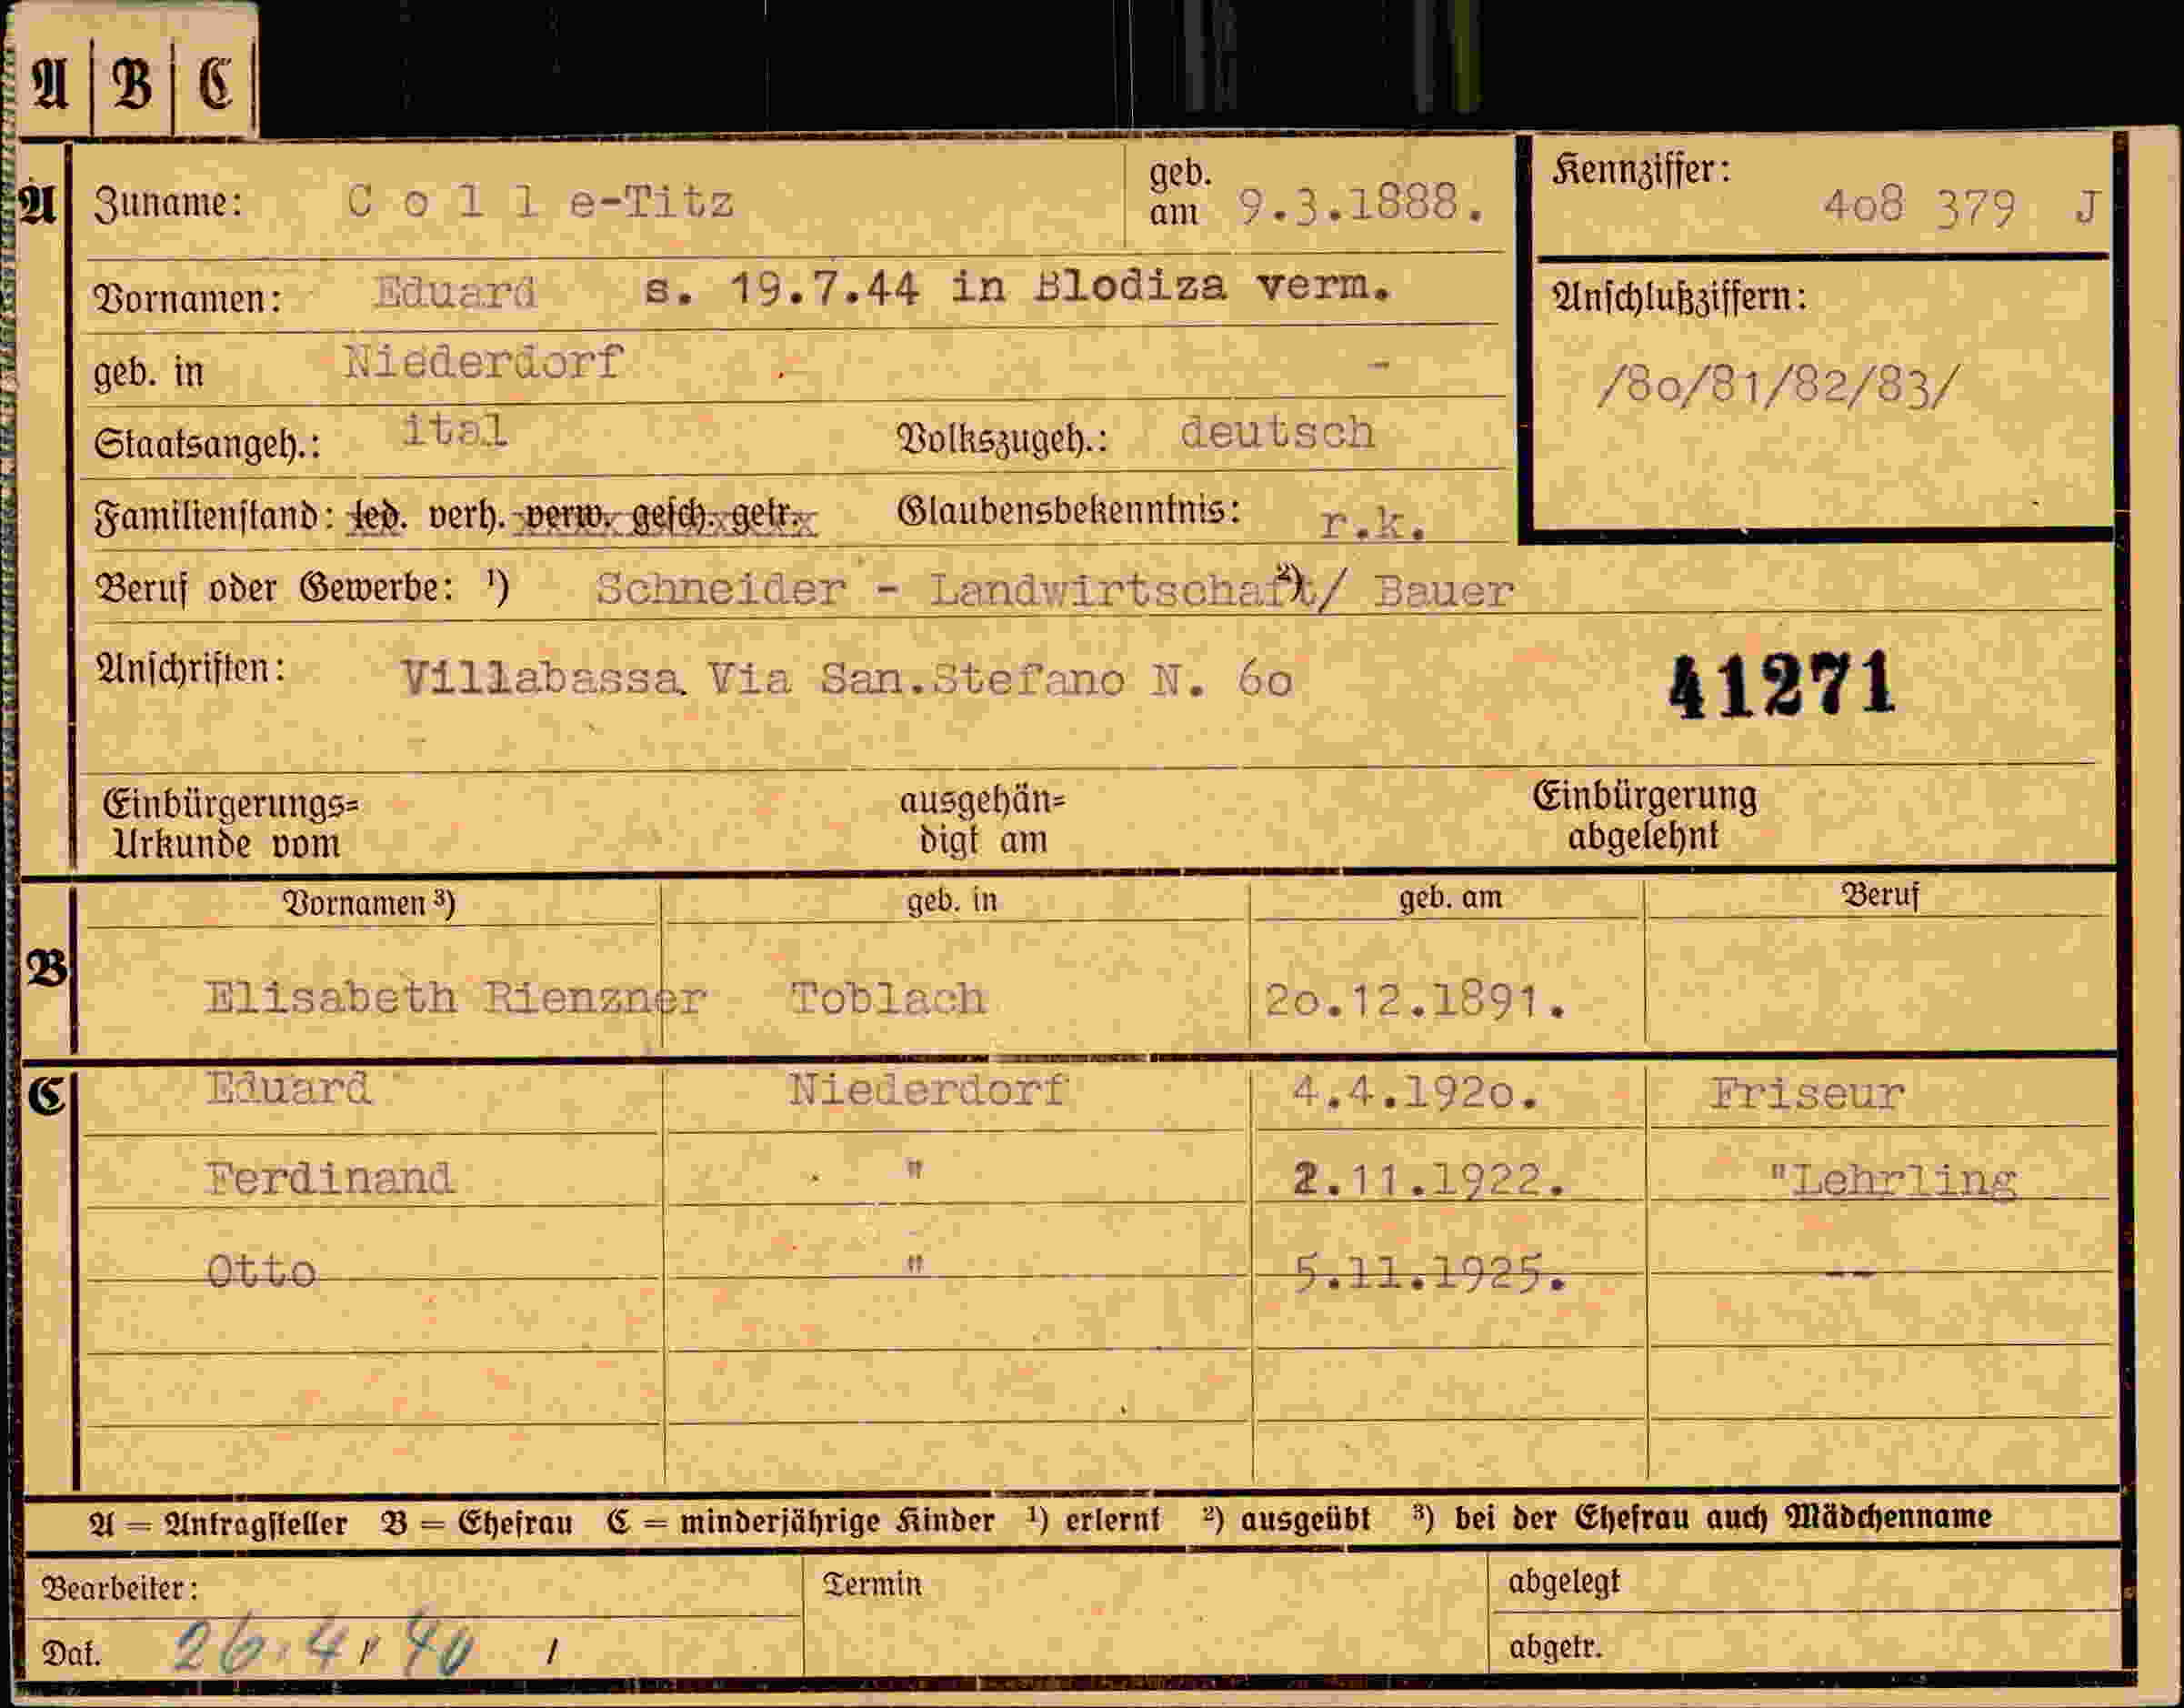 A B C
A Zuname: C o l l e-Titz geb. am 9.3.1888. Kennziffer: 408 379 J
Vornamen: Eduard s. 19.7.44 in Blodiza verm. Anschlußziffern:
geb. in Niederdorf - /80/81/82/83/
Staatsangeh.: ital Volkszugeh.: deutsch
Familienstand: led. verh. verw. gesch. getr. Glaubensbekenntnis: r.k.
Beruf oder Gewerbe: ¹) Schneider - Landwirtschaft ²)/ Bauer
Anschriften: Villabassa. Via San.Stefano N. 60 41271
Einbürgerungs= ausgehän= Einbürgerung
Urkunde vom digt am abgelehnt
Vornamen ³) geb. in geb. am Beruf
B Elisabeth Rienzner Toblach 20.12.1891.
C Eduard Niederdorf 4.4.1920. Friseur
Ferdinand " 2.11.1922. "Lehrling
Otto " 5.11.1925. --
A = Antragsteller B = Ehefrau C = minderjährige Kinder ¹) erlernt ²) ausgeübt ³) bei der Ehefrau auch Mädchenname
Bearbeiter: Termin abgelegt
Dat. 26.4.40 / abgetr.